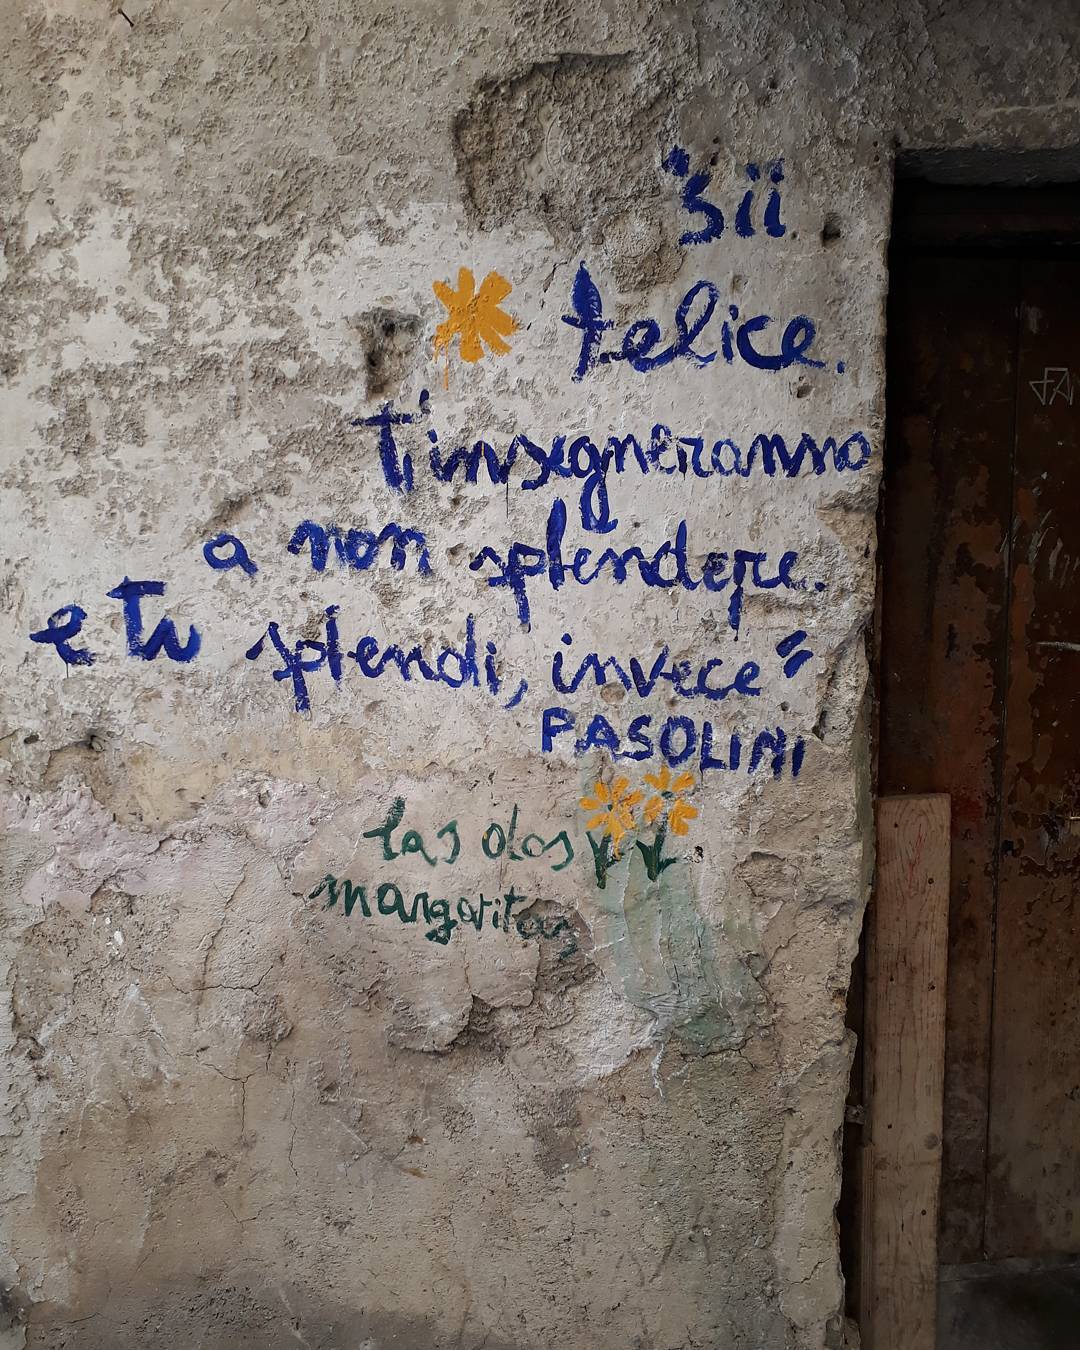 "sii
felice.
t'insegneranno
a non splendere.
e tu splendi, invece"
PASOLINI
las dos
margaritas